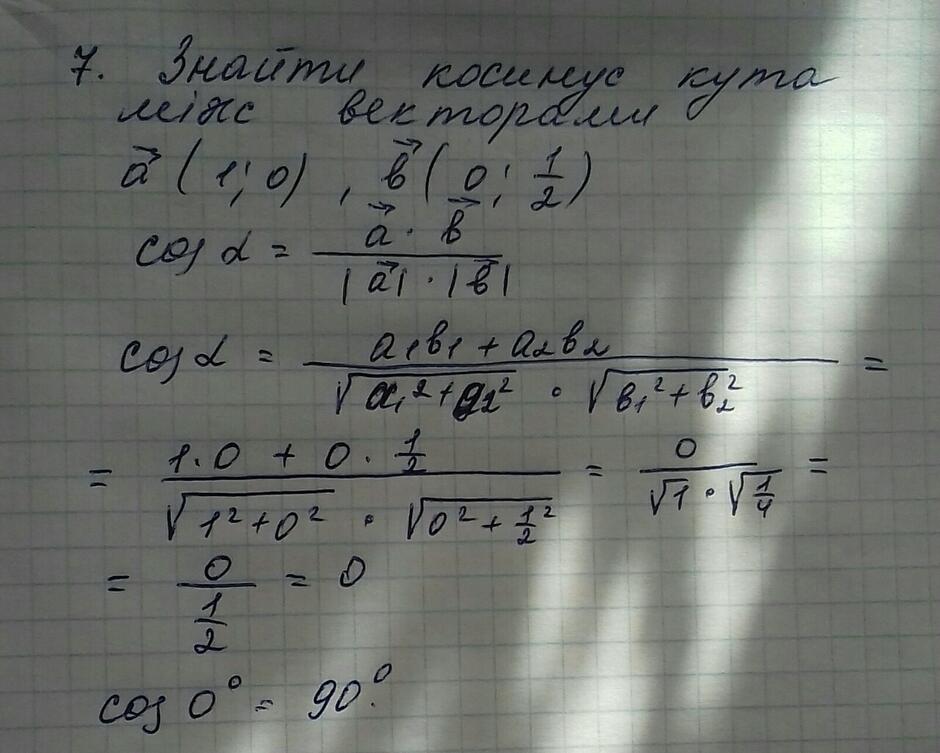 7. Знайти косинус кута
між векторами
a⃗ (1; 0), b⃗ (0; 1/2)
cos α = (a⃗ · b⃗) / (|a⃗| · |b⃗|)
cos α = (a₁b₁ + a₂b₂) / (√(a₁² + a₂²) · √(b₁² + b₂²)) =
= (1 · 0 + 0 · 1/2) / (√(1² + 0²) · √(0² + 1/2²)) = 0 / (√1 · √(1/4)) =
= 0 / (1/2) = 0
cos 0° = 90°.